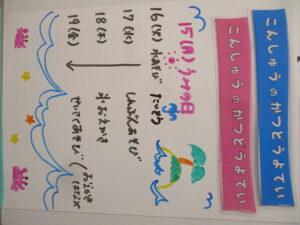 こんしゅうのかつどうよてい
こんしゅうのかつどうよてい
15(月) うみの日
16(火) 水あそび たいそう
17(水) しんぶんあそび
18(木) おえかき
19(金) せいさくあそび (おえかき